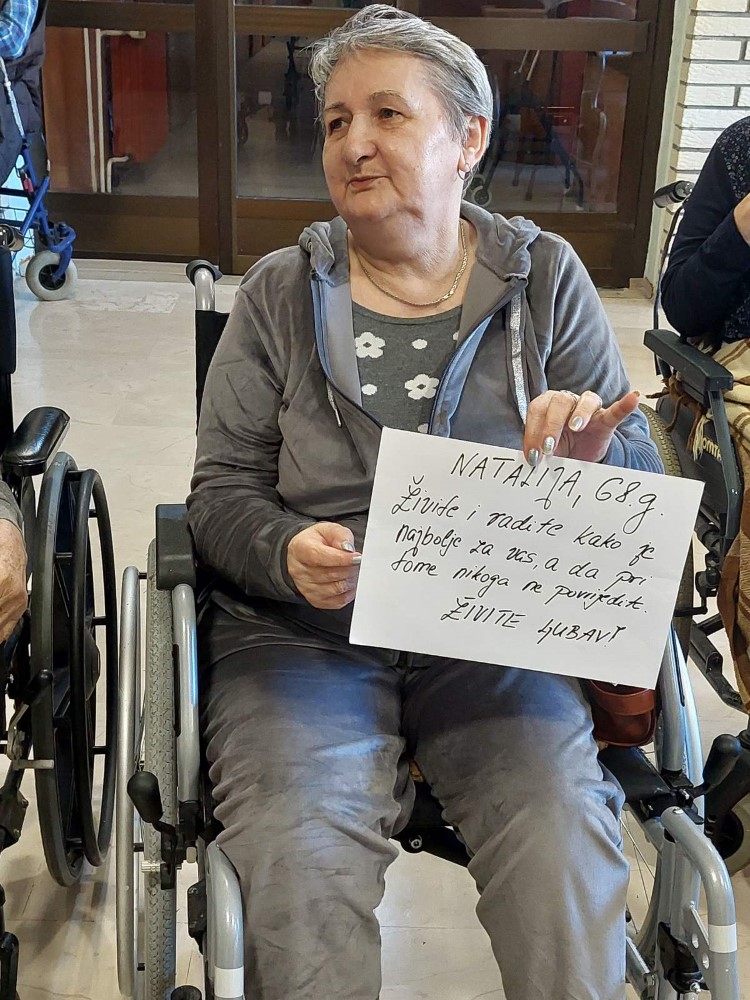 NATALIJA, 68.g.
Živite i radite kako je
najbolje za vas, a da pri
tome nikoga ne povrijedite.
ŽIVITE LJUBAV!